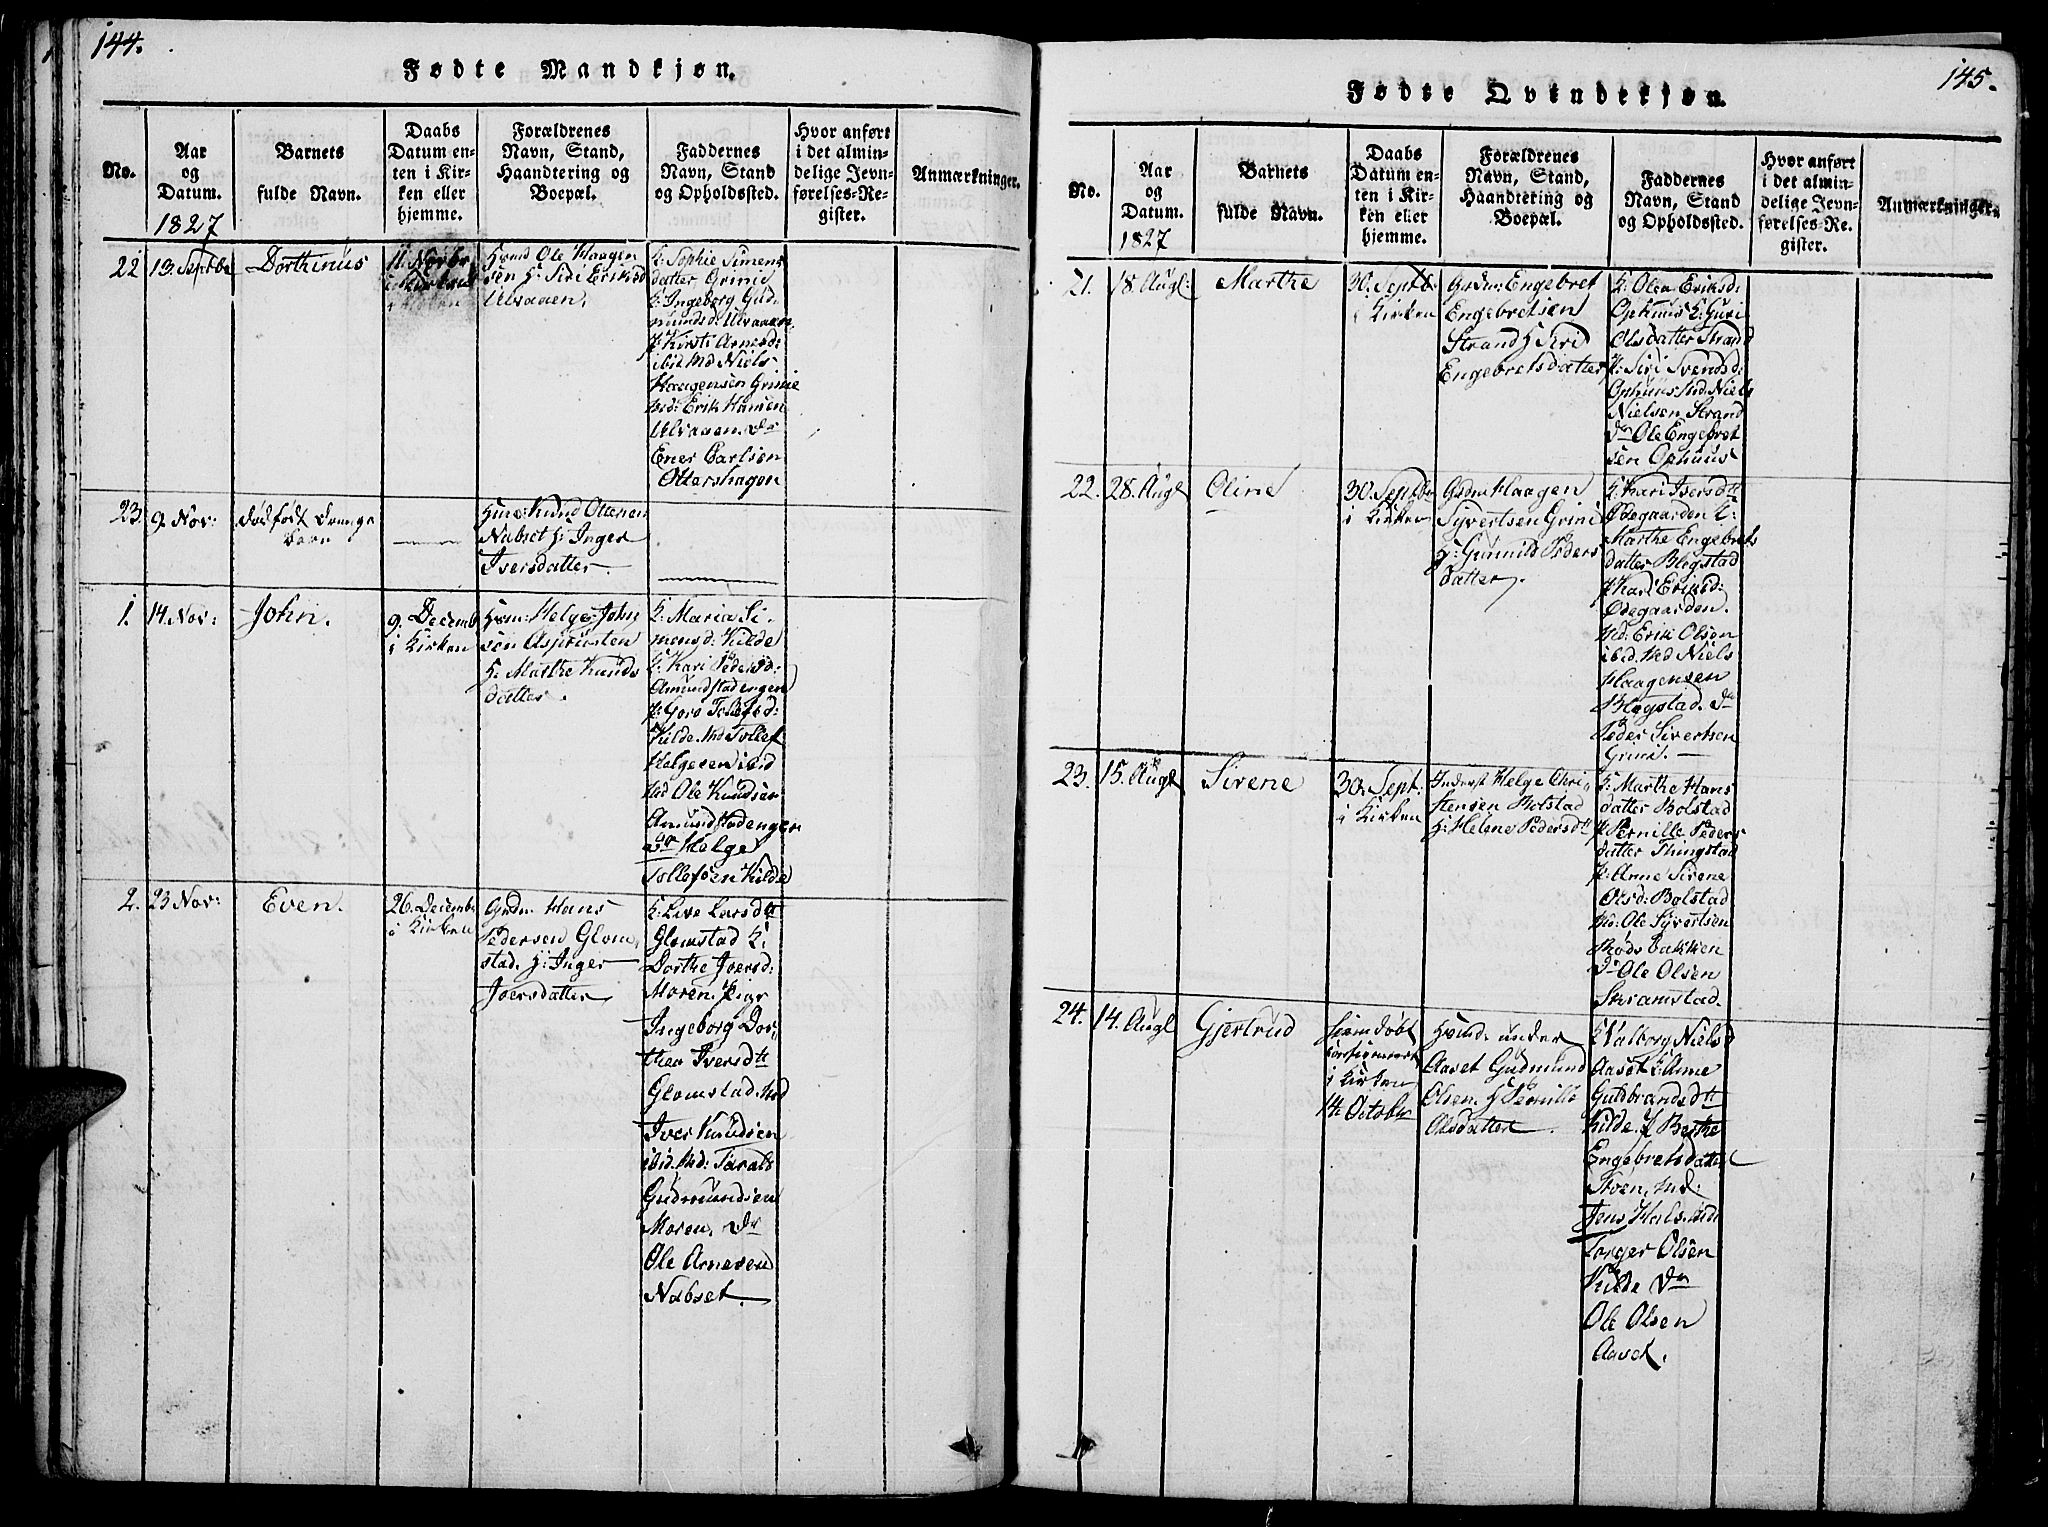 144.
Fødte Mandkjøn.
No.
Aar
og
Datum.
1827
Barnets
fulde Navn.
Daabs
Datum en-
ten i Kir-
ken eller
hjemme.
Forældrenes
Navn, Stand,
Haandtering og
Boepæl.
Faddernes
Navn, Stand
og Opholdssted.
Hvor anført
i det almin-
delige Jevn-
førelses-Re-
gister.
Anmærkninger.
22
13. Septbr
Dorthinus
11. Novbr
i Kirken
Hsmd Ole Haagen
sen H: Siri Eriksd
Ulvaaen.
K: Sophie Simens
datter Grimie
K: Ingeborg Gud-
mundsd: Ulvaaen.
P: Kirsti Arnesd:
ibid Md Niels
Haagensen Grimie
Md: Erik Hansen
Ulvaaen. Dr
Ener Carlsen
Ottershagen
23.
9. Nov:
dødfødt Drenge
barn
Hsmd: Knud Ottesen
Nabset H: Inger
Iversdatter.
1.
14 Nov:
John.
9. Decemb
i Kirken
Hsm: Helge John
sen
H. Marthe Knuds
datter.
K: Maria Si-
mensd: Kilde
K: Kari Pedersd:
Amundstadengen
P: Goro Tollefsd:
Kilde. Md Tollef
Helgesen ibid
Md Ole Knudsen
Amundstadengen
Dr Helge
Tollefsen Kilde
2.
23 Nov:
Even.
26. Decemb
i Kirken
Grdm. Hans
Pedersen Glom-
stad. H: Inger
Iversdatter
K: Live Larsdtt
Glomstad K:
Dorthe Iversd:
Moren, Piger
Ingeborg Dor-
thea Iversdtt
Glomstad. Md
Iver Knudsen
ibid. Md: Tarald
Gudmundsen
Moren, Dr
Ole Arnesen
Nabset.
145.
Fødte Qvindekjøn.
No.
Aar
og
Datum.
1827
Barnets
fulde Navn.
Daabs
Datum en-
ten i Kir-
ken eller
hjemme.
Forældrenes
Navn, Stand,
Haandtering og
Boepæl.
Faddernes
Navn, Stand
og Opholdssted.
Hvor anført
i det almin-
delige Jevn-
førelses-Re-
gister.
Anmærkninger.
21.
18. Augt:
Marthe
30. Septb:
i Kirken
Grdm: Engebret
Engebretsen
Strand H Siri
Engebretsdatter
K: Olea Eriksd:
Ophuus K: Guri
Olsdatter Strand
P: Siri Svendsd:
Ophuus Md. Niels
Nielsen Strand
Dr Ole Engebret
sen Ophuus
22.
28. Augt
Oline
30. Septbr
i Kirken
Grdm Haagen
Syvertsen Grini
H: Gunnild Peders
datter.
K: Kari Iversdtt
Ødegaarden K:
Marthe Engebrets
datter Blegstad
P: Kari Eriksd:
Ødegaarden.
Md: Erik Olsen
ibid. Md Niels
Haagensen
Blegstad. Dr
Peder Sivertsen
Grini.
23.
15. Augt
Sirene
30. Sept:
i Kirken
Inderst Helge Chri-
stensen Bolstad
H: Helene Pedersdtt
K: Marthe Hans
datter Bolstad
P: Pernille Peders
datter Thingstad
P: Anne Sirene
Olsd: Bolstad
Md: Ole Syvertsen
Rødsbakken
Dr Ole Olsen
Skramstad.
24.
14. Augt
Gjertrud
hjemdøbt
i Kirken
14. October
Hsmd. under
Aaset Gudmund
Olsen H Pernille
Olsdatter.
K Valborg Nielsd
Aaset K: Anne
Guldbrandsdtt
Kilde. P Berthe
Engebretsdatter
Stoen, Md:
Jens Hals. Md
Torger Olsen
Kilde Dr
Ole Olsen
Aaset.